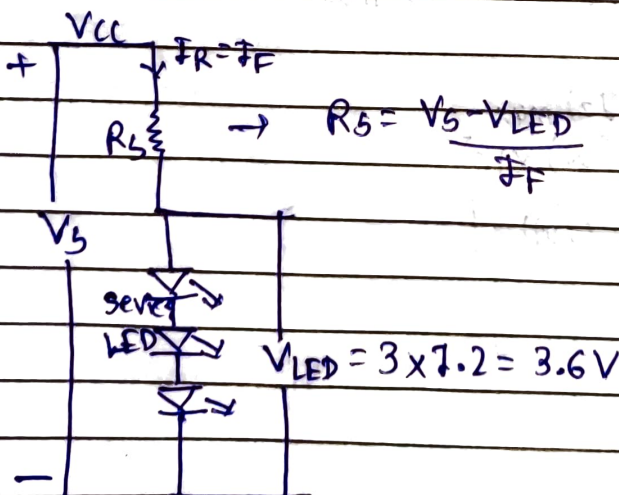 VCC
+
IR = IF
RS → RS = VS - VLED
IF
VS
LED
VLED = 3 x 1.2 = 3.6 V
-